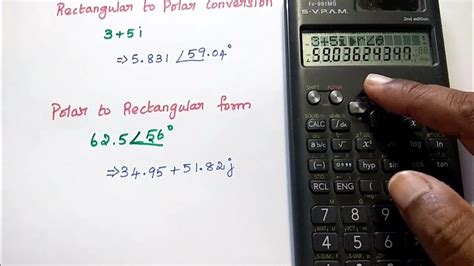 Rectangular to Polar Conversion
3+5i
⇒5.831∠59.04°
Polar to Rectangular form
62.5∠56°
⇒34.95+51.82j
fx-991MS
S-V.P.A.M.
2nd edition
59.03624343
SHIFT
ALPHA
CALC
∫dx
RCL
ENG
(
7
8
9
4
5